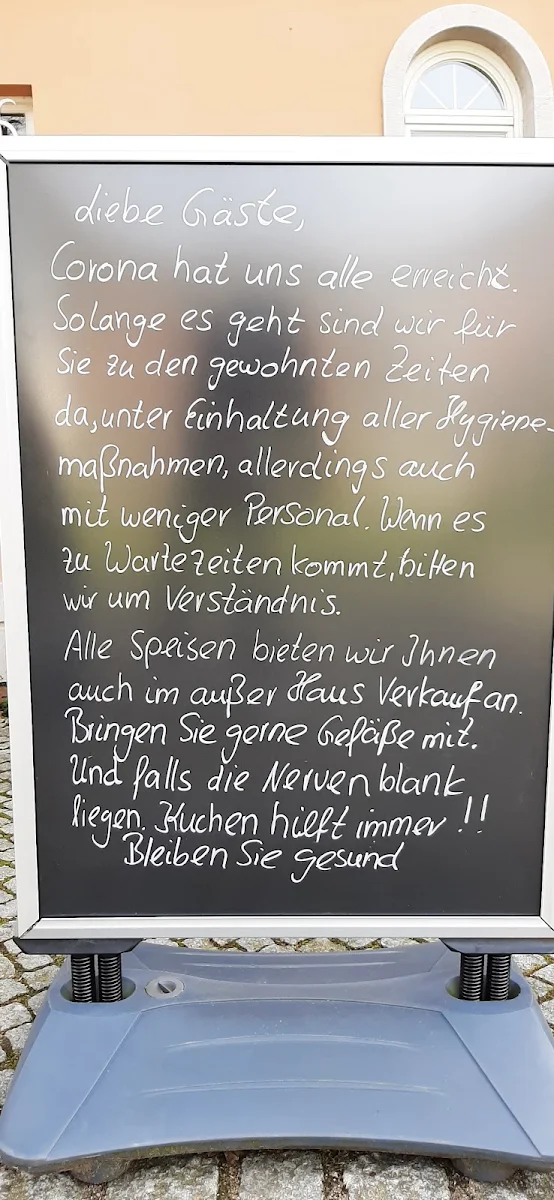 Liebe Gäste,
Corona hat uns alle erreicht.
Solange es geht sind wir für
Sie zu den gewohnten Zeiten
da, unter Einhaltung aller Hygiene-
maßnahmen, allerdings auch
mit weniger Personal. Wenn es
zu Wartezeiten kommt, bitten
wir um Verständnis.
Alle Speisen bieten wir Ihnen
auch im außer Haus Verkauf an.
Bringen Sie gerne Gefäße mit.
Und falls die Nerven blank
liegen. Kuchen hilft immer !!
Bleiben Sie gesund